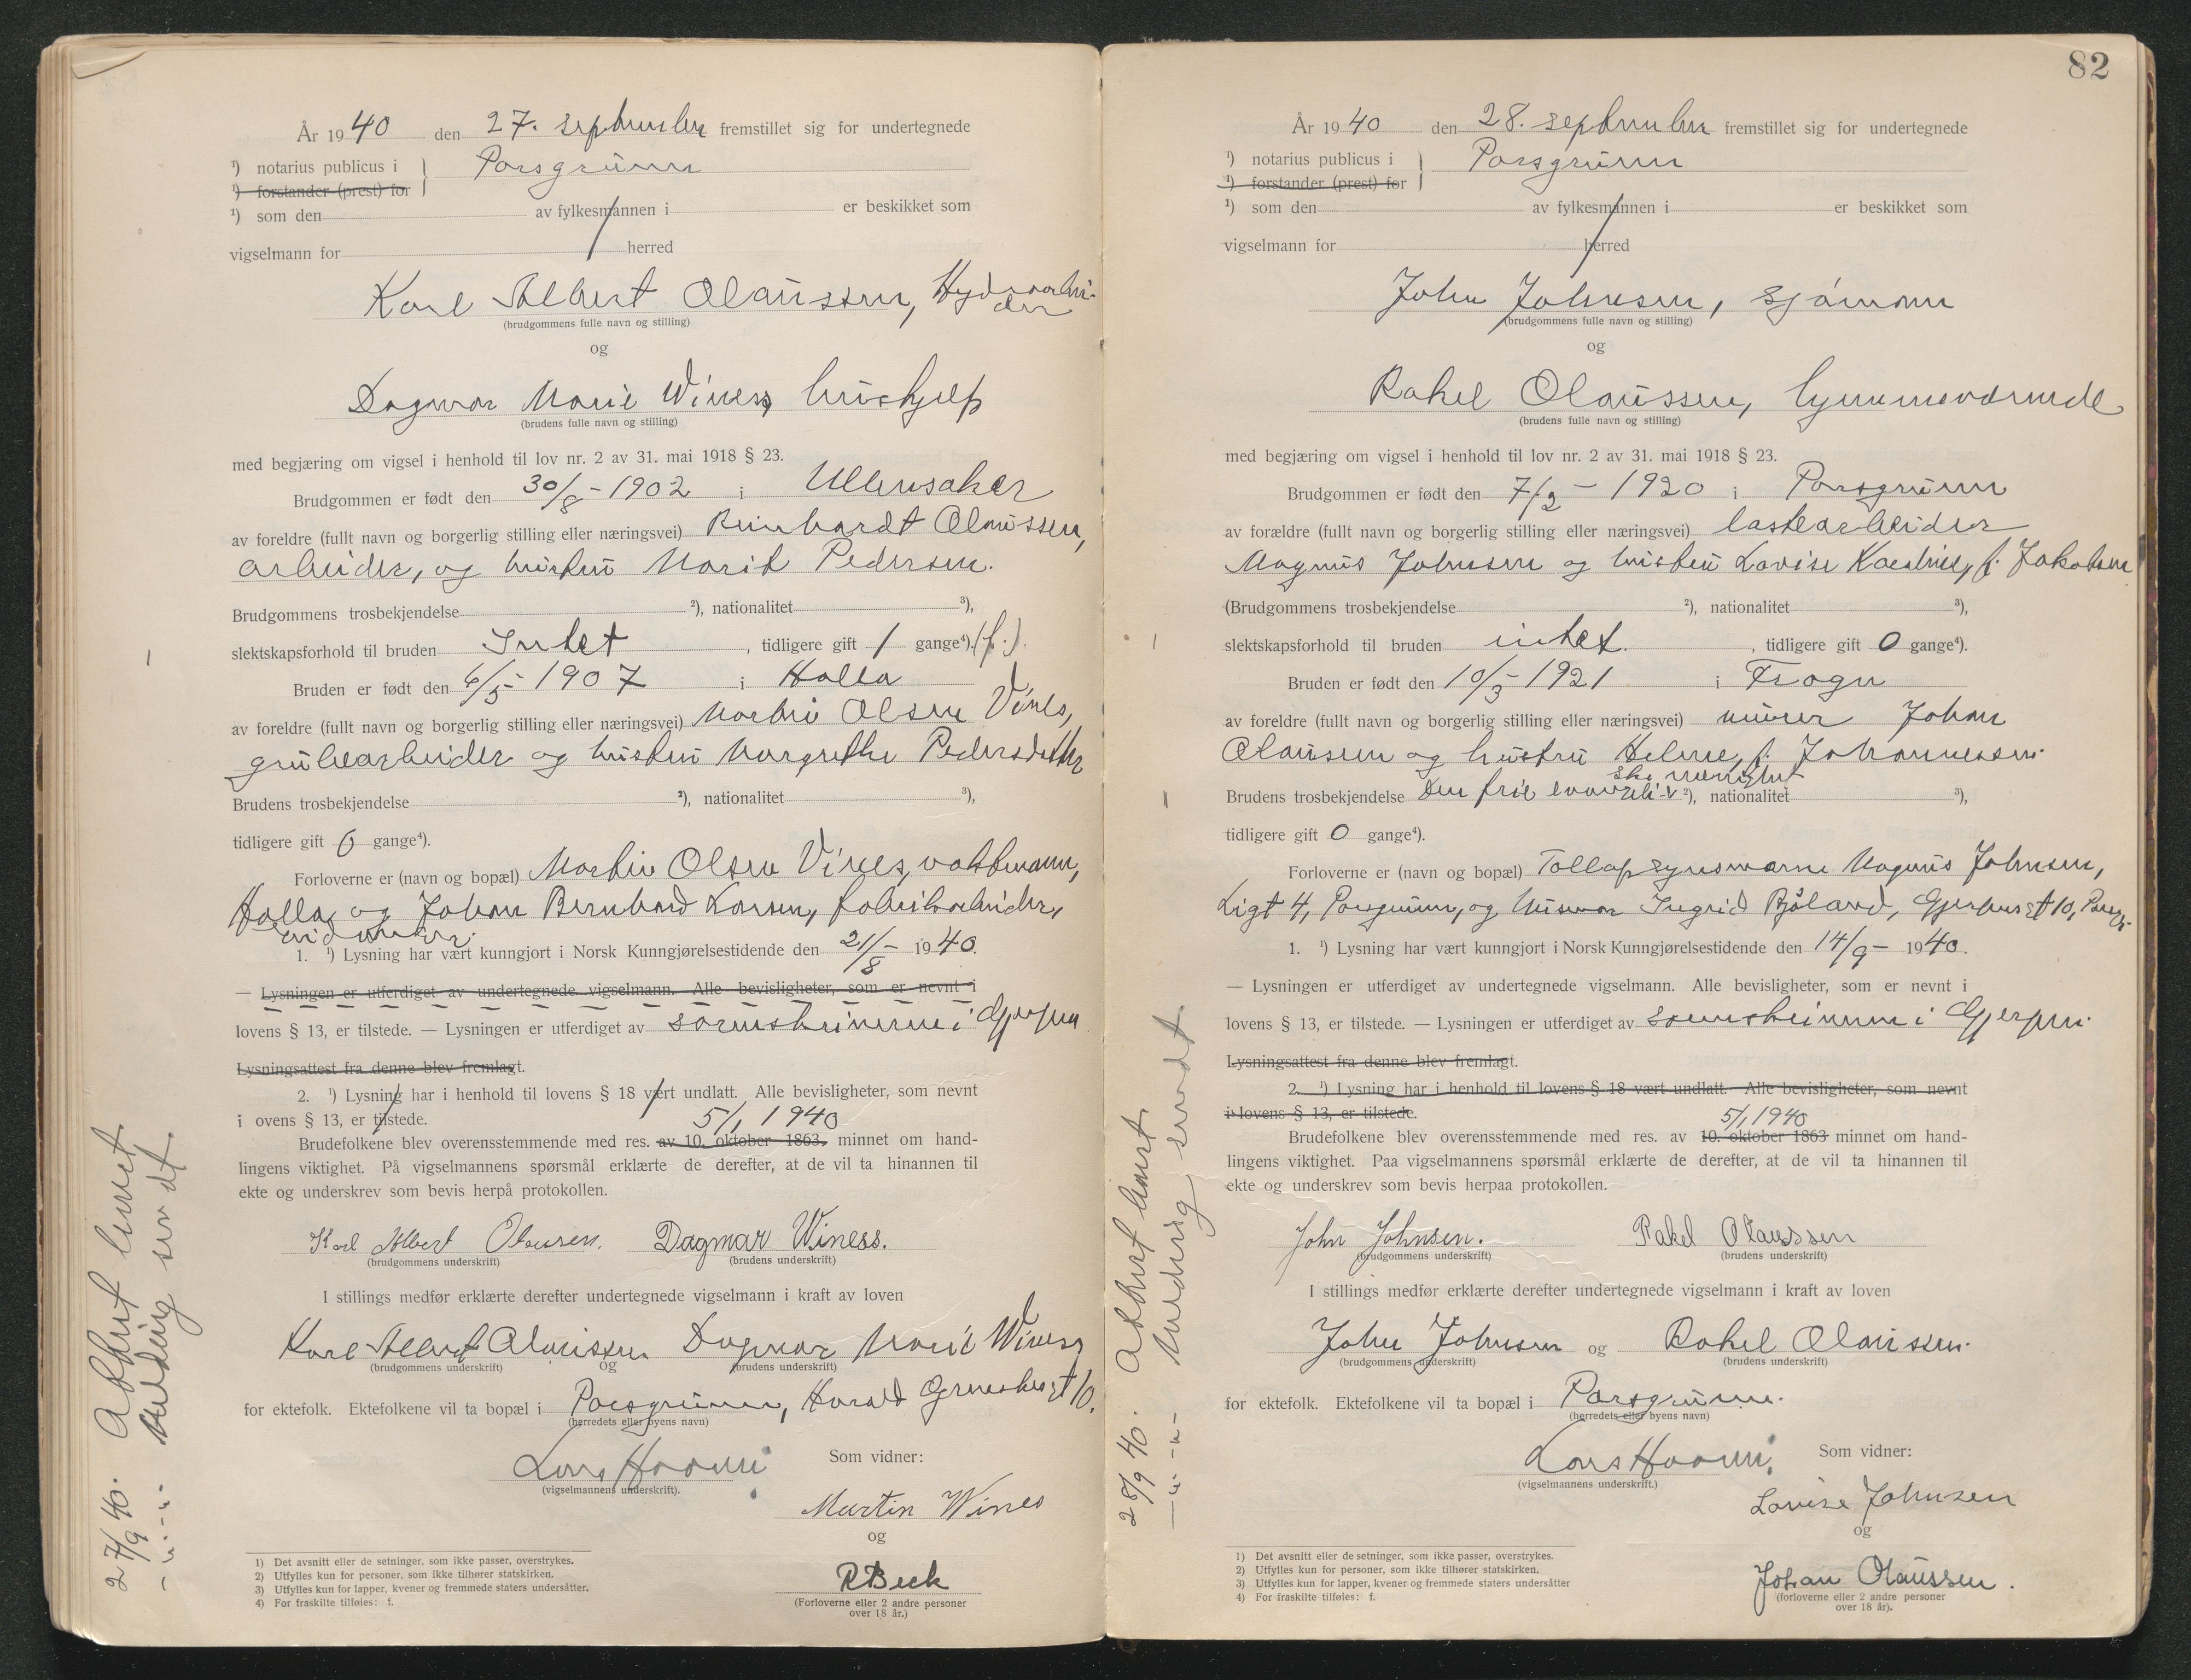 År 1940 den 27. september fremstillet sig for undertegnede
¹) notarius publicus i Porsgrunn
¹) forstander (prest) for
¹) som den av fylkesmannen i er beskikket som
vigselmann for herred
Karl Albert Olaussen, Hydroarbei-
der
(brudgommens fulle navn og stilling)
og
Dagmar Marie Winess, hushjelp
(brudens fulle navn og stilling)
med begjæring om vigsel i henhold til lov nr. 2 av 31. mai 1918 § 23.
Brudgommen er født den 30/8 - 1902 i Ullensaker
av foreldre (fullt navn og borgerlig stilling eller næringsvei) Reinhardt Olaussen,
arbeider, og hustru Marit Pedersen.
Brudgommens trosbekjendelse ²), nationalitet ³),
slektskapsforhold til bruden Intet, tidligere gift 1 gange⁴) (f.).
Bruden er født den 6/5 - 1907 i Holla
av foreldre (fullt navn og borgerlig stilling eller næringsvei) Martin Olsen Vines,
grubearbeider og hustru Margrethe Pedersdatter
Brudens trosbekjendelse ²), nationalitet ³),
tidligere gift 0 gange⁴).
Forloverne er (navn og bopæl) Martin Olsen Vines, vaktmann,
Holla, og Johan Bernhard Larsen, fabrikarbeider,
1. ¹) Lysning har vært kunngjort i Norsk Kunngjørelsestidende den 21/8 - 1940.
— Lysningen er utferdiget av undertegnede vigselmann. Alle bevisligheter, som er nevnt i
lovens § 13, er tilstede. — Lysningen er utferdiget av sorenskriveren i Gjerpen
Lysningsattest fra denne blev fremlagt.
2. ¹) Lysning har i henhold til lovens § 18 vært undlatt. Alle bevisligheter, som nevnt
i ovens § 13, er tilstede.
5/1 1940
Brudefolkene blev overensstemmende med res. av 10. oktober 1863. minnet om hand-
lingens viktighet. På vigselmannens spørsmål erklærte de derefter, at de vil ta hinannen til
ekte og underskrev som bevis herpå protokollen.
Karl Albert Olausen. Dagmar Winess.
(brudgommens underskrift) (brudens underskrift)
I stillings medfør erklærte derefter undertegnede vigselmann i kraft av loven
Karl Albert Olaussen Dagmar Marie Winess
(brudgommens underskrift) og (brudens underskrift)
for ektefolk. Ektefolkene vil ta bopæl i Porsgrunn, Harald Grenskesgt 10.
(herredets eller byens navn)
Lars Haavi
(vigselmannens underskrift).
Som vidner:
Martin Wines
og
R Beck
(Forloverne eller 2 andre personer
over 18 år.)
1) Det avsnitt eller de setninger, som ikke passer, overstrykes.
2) Utfylles kun for personer, som ikke tilhører statskirken.
3) Utfylles kun for lapper, kvener og fremmede staters undersåtter.
4) For fraskilte tilføies: f.
27/9 40. Attest levert.
- " - " - Melding sendt.
82
År 1940 den 28. september fremstillet sig for undertegnede
¹) notarius publicus i Porsgrunn
¹) forstander (prest) for
¹) som den av fylkesmannen i er beskikket som
vigselmann for herred
John Johnsen, sjømann
(brudgommens fulle navn og stilling)
og
Rakel Olaussen, hjemmeværende
(brudens fulle navn og stilling)
med begjæring om vigsel i henhold til lov nr. 2 av 31. mai 1918 § 23.
Brudgommen er født den 7/2 - 1920 i Porsgrunn
av forældre (fullt navn og borgerlig stilling eller næringsvei) lastearbeider
Magnus Johnsen og hustru Lovise Kaeline, f. Jakobsen
(Brudgommens trosbekjendelse ²), nationalitet ³),
slektskapsforhold til bruden intet. , tidligere gift 0 gange⁴).
Bruden er født den 10/3 - 1921 i Frogn
av foreldre (fullt navn og borgerlig stilling eller næringsvei) murer Johan
Olaussen og hustru Helene, f. Johannessen.
ske menighet
Brudens trosbekjendelse Den frie evangeli- ²), nationalitet ³),
tidligere gift 0 gange⁴).
Forloverne er (navn og bopæl) Tollopsynsmann Magnus Johnsen,
Ligt 4, Porsgrunn, og Husmor Ingrid Bjåland, Gjerpensgt 10, Porsgr.
1. ¹) Lysning har vært kunngjort i Norsk Kunngjørelsestidende den 14/9 - 1940.
— Lysningen er utferdiget av undertegnede vigselmann. Alle bevisligheter, som er nevnt i
lovens § 13, er tilstede. — Lysningen er utferdiget av sorenskriveren i Gjerpen.
Lysningsattest fra denne blev fremlagt.
2. ¹) Lysning har i henhold til lovens § 18 vært undlatt. Alle bevisligheter, som nevnt
i lovens § 13, er tilstede.
5/1 1940
Brudefolkene blev overensstemmende med res. av 10. oktober 1863 minnet om hand-
lingens viktighet. Paa vigselmannens spørsmål erklærte de derefter, at de vil ta hinannen til
ekte og underskrev som bevis herpaa protokollen.
John Johnsen. Rakel Olaussen
(brudgommens underskrift) (brudens underskrift)
I stillings medfør erklærte derefter undertegnede vigselmann i kraft av loven
John Johnsen og Rakel Olaussen.
(brudgommens underskrift) (brudens underskrift)
for ektefolk. Ektefolkene vil ta bopæl i Porsgrunn.
(herredets eller byens navn)
Lars Haavi
(vigselmannens underskrift.)
Som vidner:
Lovise Johnsen
og
Johan Olaussen.
(forloverne eller 2 andre personer
over 18 år).
1) Det avsnitt eller de setninger, som ikke passer, overstrykes.
2) Utfylles kun for personer, som ikke tilhører statskirken.
3) Utfylles kun for lapper, kvener og fremmede staters undersåtter
4) For fraskilte tilføies: f.
28/9 40. Attest levert.
- " - " - Melding sendt.